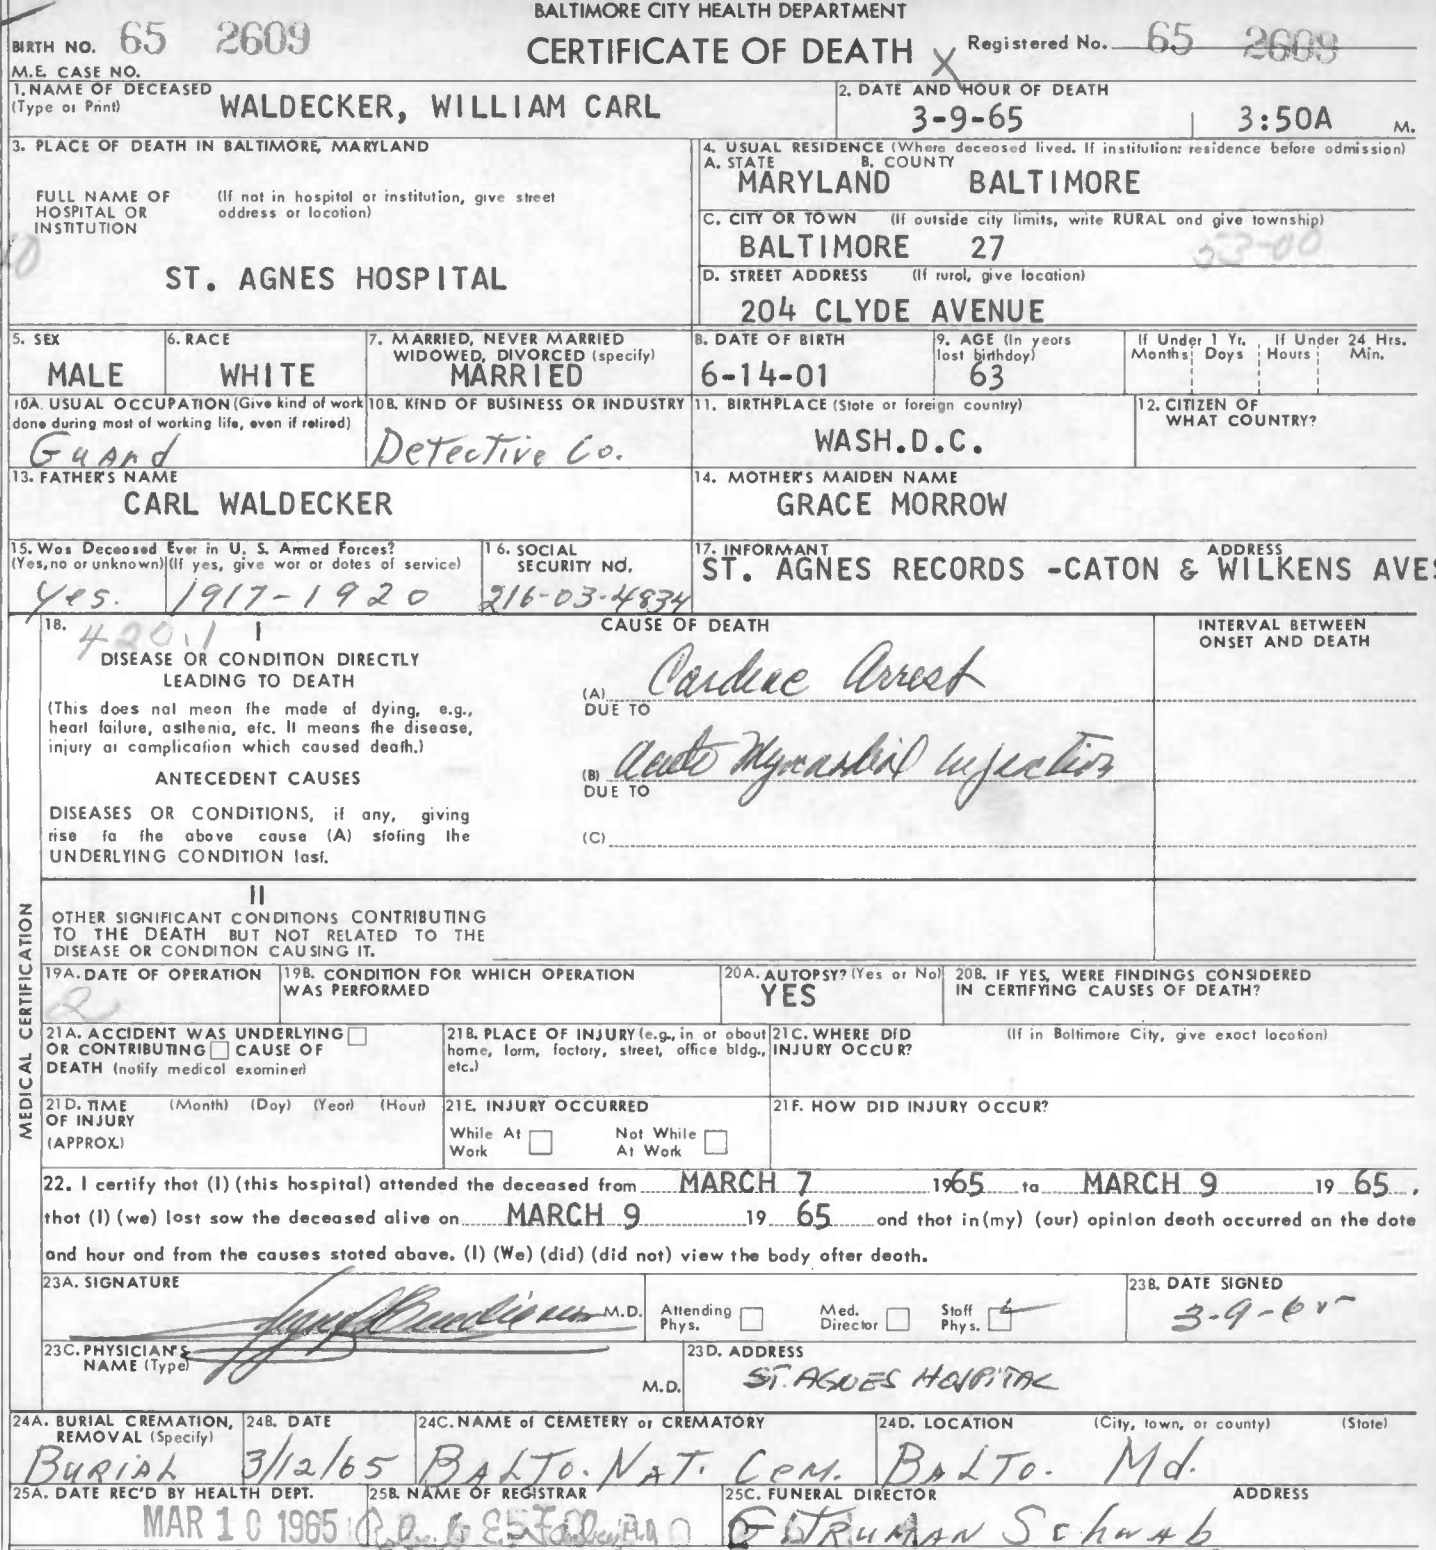 BALTIMORE CITY HEALTH DEPARTMENT
BIRTH NO. 65 2609
CERTIFICATE OF DEATH X Registered No. 65 2609
M.E. CASE NO.
1. NAME OF DECEASED (Type or Print) WALDECKER, WILLIAM CARL
2. DATE AND HOUR OF DEATH
3-9-65 3:50A M.
3. PLACE OF DEATH IN BALTIMORE, MARYLAND
FULL NAME OF HOSPITAL OR INSTITUTION (If not in hospital or institution, give street address or location)
ST. AGNES HOSPITAL
4. USUAL RESIDENCE (Where deceased lived. If institution: residence before admission)
A. STATE B. COUNTY
MARYLAND BALTIMORE
C. CITY OR TOWN (If outside city limits, write RURAL and give township)
BALTIMORE 27 53-00
D. STREET ADDRESS (If rural, give location)
204 CLYDE AVENUE
5. SEX
MALE
6. RACE
WHITE
7. MARRIED, NEVER MARRIED
WIDOWED, DIVORCED (specify)
MARRIED
8. DATE OF BIRTH
6-14-01
9. AGE (In years last birthday)
63
If Under 1 Yr. If Under 24 Hrs.
Months Days Hours Min.
10A. USUAL OCCUPATION (Give kind of work
done during most of working life, even if retired)
Guard
10B. KIND OF BUSINESS OR INDUSTRY
Detective Co.
11. BIRTHPLACE (State or foreign country)
WASH.D.C.
12. CITIZEN OF
WHAT COUNTRY?
13. FATHER'S NAME
CARL WALDECKER
14. MOTHER'S MAIDEN NAME
GRACE MORROW
15. Was Deceased Ever in U. S. Armed Forces?
(Yes, no or unknown) (If yes, give war or dates of service)
Yes. 1917-1920
16. SOCIAL
SECURITY NO.
216-03-4834
17. INFORMANT ADDRESS
ST. AGNES RECORDS -CATON & WILKENS AVES
18. 420.1 I
DISEASE OR CONDITION DIRECTLY
LEADING TO DEATH
(This does not mean the mode of dying, e.g.,
heart failure, asthenia, etc. It means the disease,
injury or complication which caused death.)
ANTECEDENT CAUSES
DISEASES OR CONDITIONS, if any, giving
rise to the above cause (A) stating the
UNDERLYING CONDITION last.
CAUSE OF DEATH
(A) Cardiac Arrest
DUE TO
(B) Acute Myocardial Infarction
DUE TO
(C)
INTERVAL BETWEEN
ONSET AND DEATH
II
OTHER SIGNIFICANT CONDITIONS CONTRIBUTING
TO THE DEATH BUT NOT RELATED TO THE
DISEASE OR CONDITION CAUSING IT.
MEDICAL CERTIFICATION
19A. DATE OF OPERATION
2
19B. CONDITION FOR WHICH OPERATION
WAS PERFORMED
20A. AUTOPSY? (Yes or No)
YES
20B. IF YES, WERE FINDINGS CONSIDERED
IN CERTIFYING CAUSES OF DEATH?
21A. ACCIDENT WAS UNDERLYING
OR CONTRIBUTING CAUSE OF
DEATH (notify medical examiner)
21B. PLACE OF INJURY (e.g., in or about
home, farm, factory, street, office bldg.,
etc.)
21C. WHERE DID (If in Baltimore City, give exact location)
INJURY OCCUR?
21D. TIME (Month) (Day) (Year) (Hour)
OF INJURY
(APPROX.)
21E. INJURY OCCURRED
While At Work Not While At Work
21F. HOW DID INJURY OCCUR?
22. I certify that (I) (this hospital) attended the deceased from MARCH 7 1965 to MARCH 9 19 65,
that (I) (we) last saw the deceased alive on MARCH 9 19 65 and that in (my) (our) opinion death occurred on the date
and hour and from the causes stated above. (I) (We) (did) (did not) view the body after death.
23A. SIGNATURE
M.D. Attending Phys. Med. Director Staff Phys.
23B. DATE SIGNED
3-9-65
23C. PHYSICIAN'S
NAME (Type)
M.D.
23D. ADDRESS
ST. AGNES HOSPITAL
24A. BURIAL CREMATION,
REMOVAL (Specify)
BURIAL
24B. DATE
3/12/65
24C. NAME of CEMETERY or CREMATORY
BALTO. NAT. Cem.
24D. LOCATION (City, town, or county) (State)
BALTO. Md.
25A. DATE REC'D BY HEALTH DEPT.
MAR 10 1965
25B. NAME OF REGISTRAR
25C. FUNERAL DIRECTOR ADDRESS
G. TRUMAN Schwab